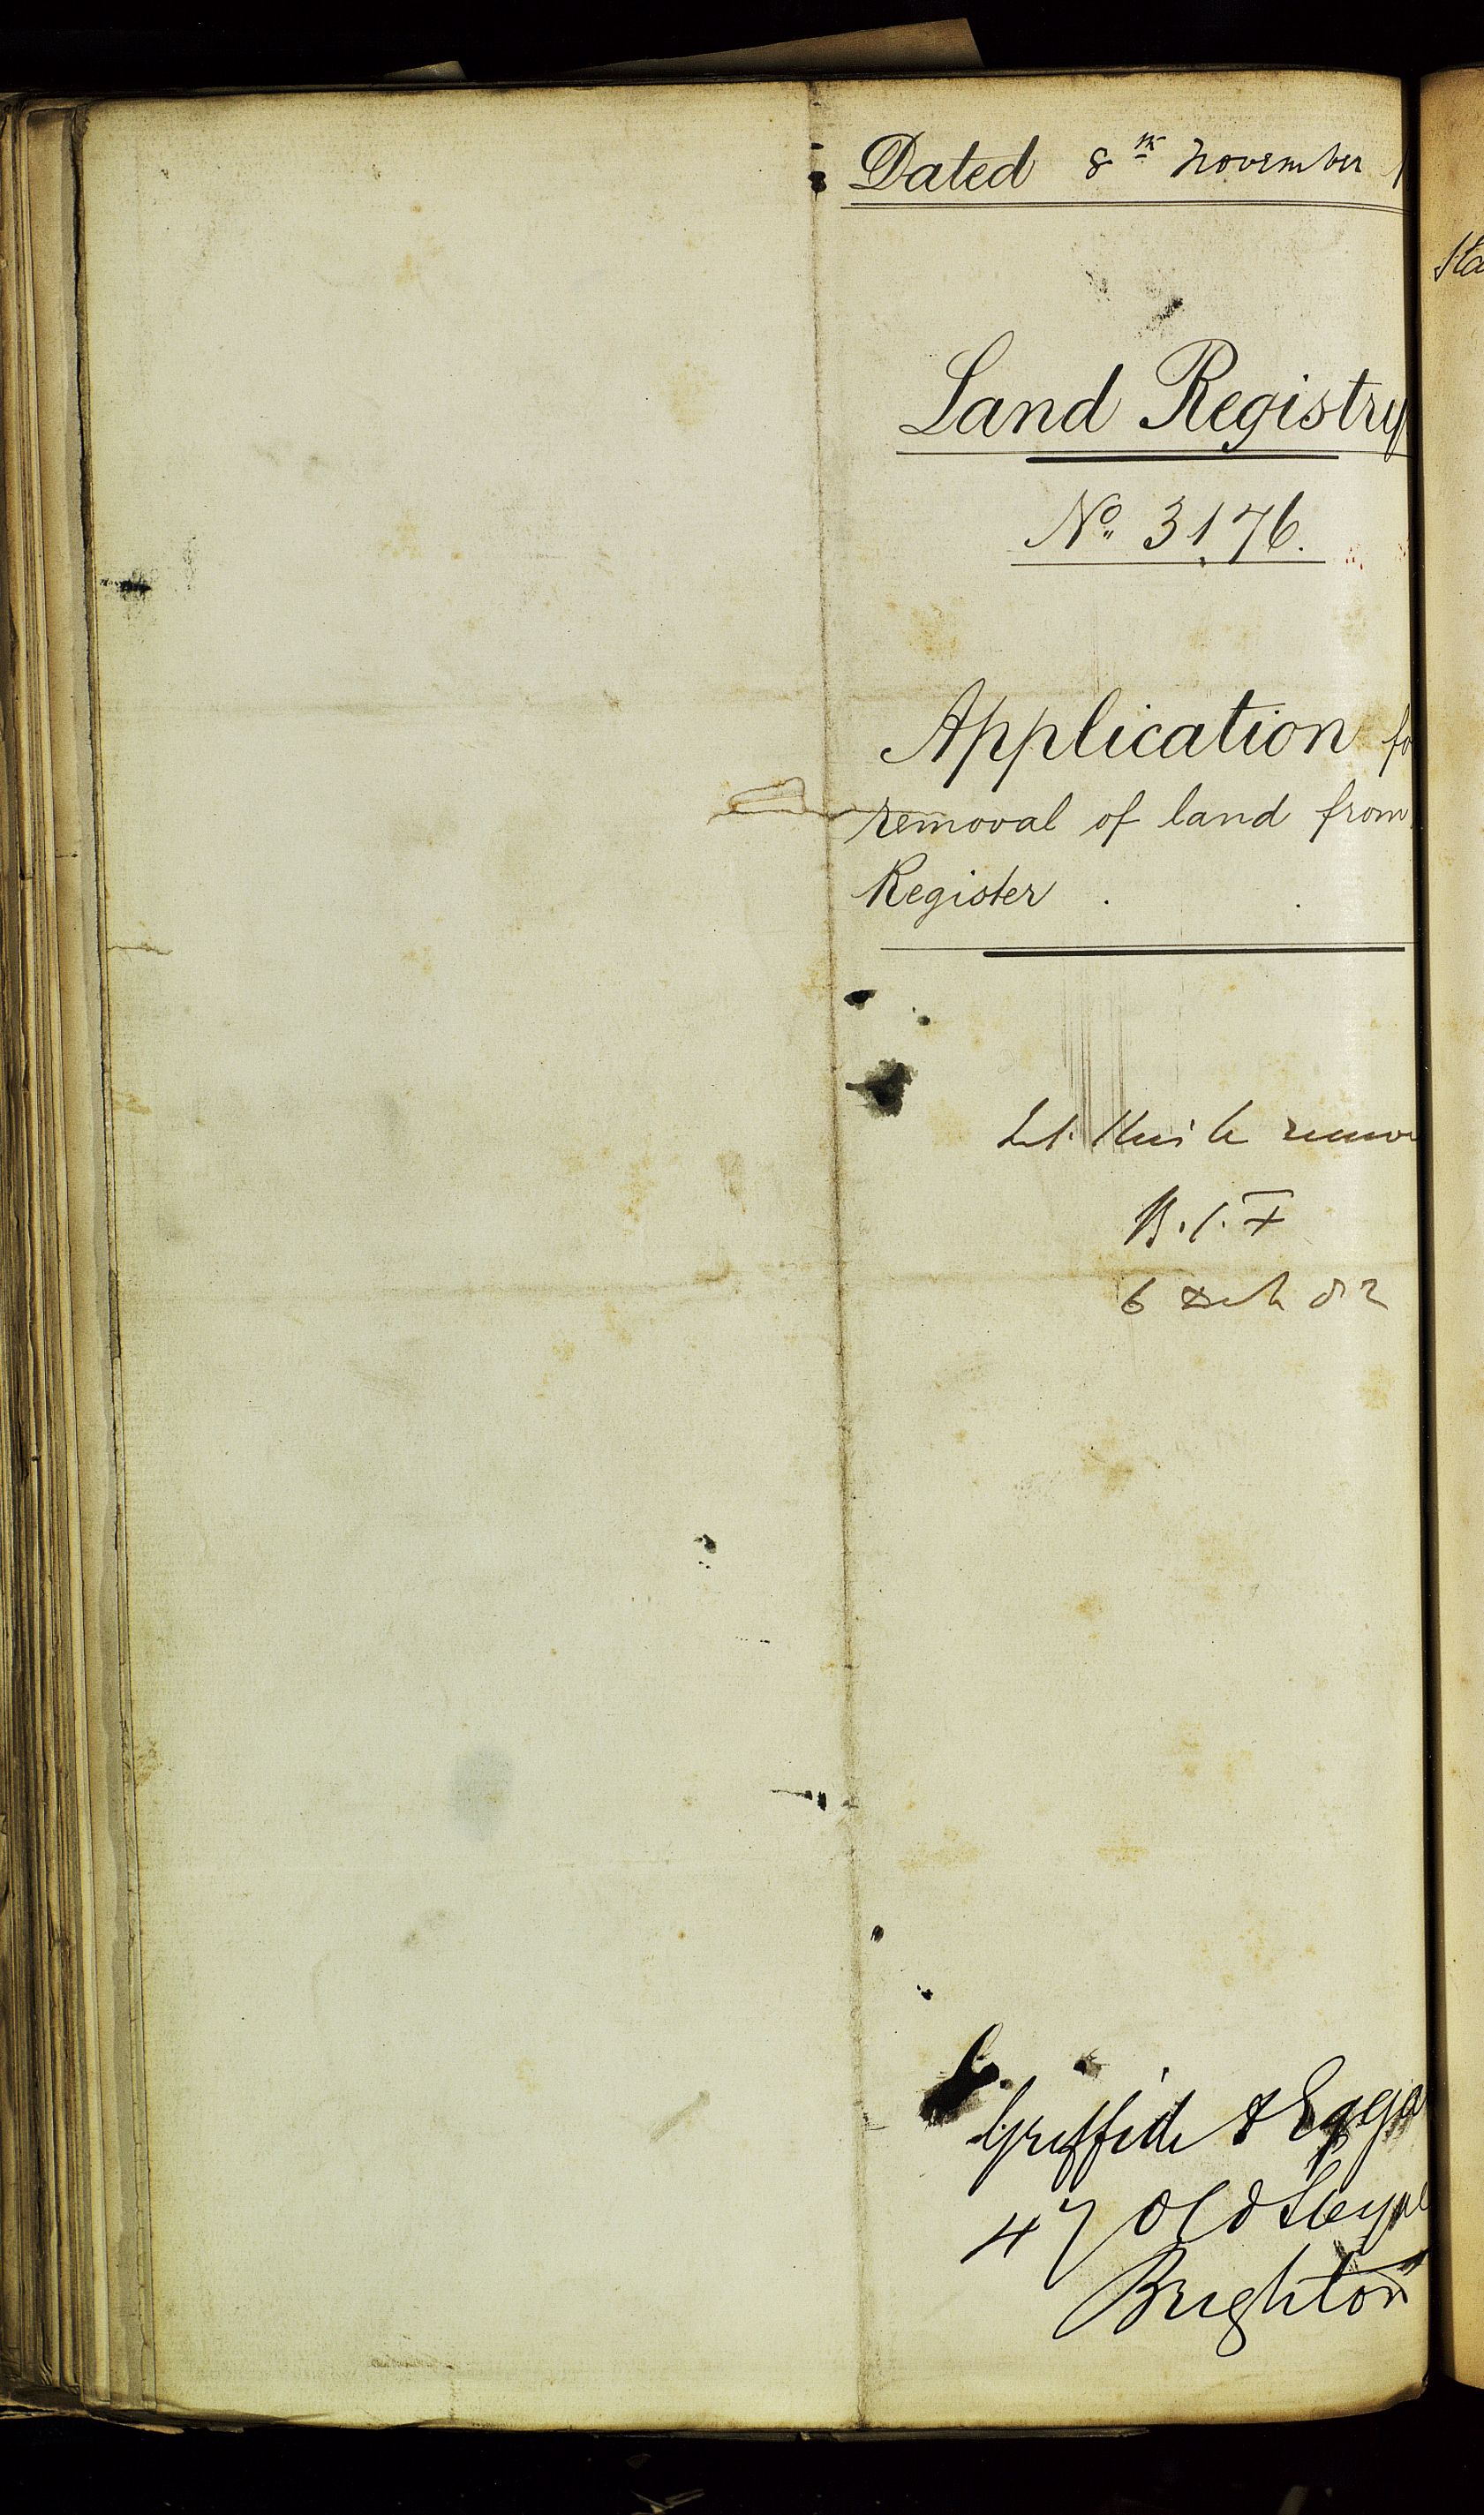 Dated 8th November 1
Land Registry
No. 3176.
Application fo
removal of land from
Register
Let this be remov
6 Dec 82
Griffith & Egga
47 Old Steyne
Brighton
Sta